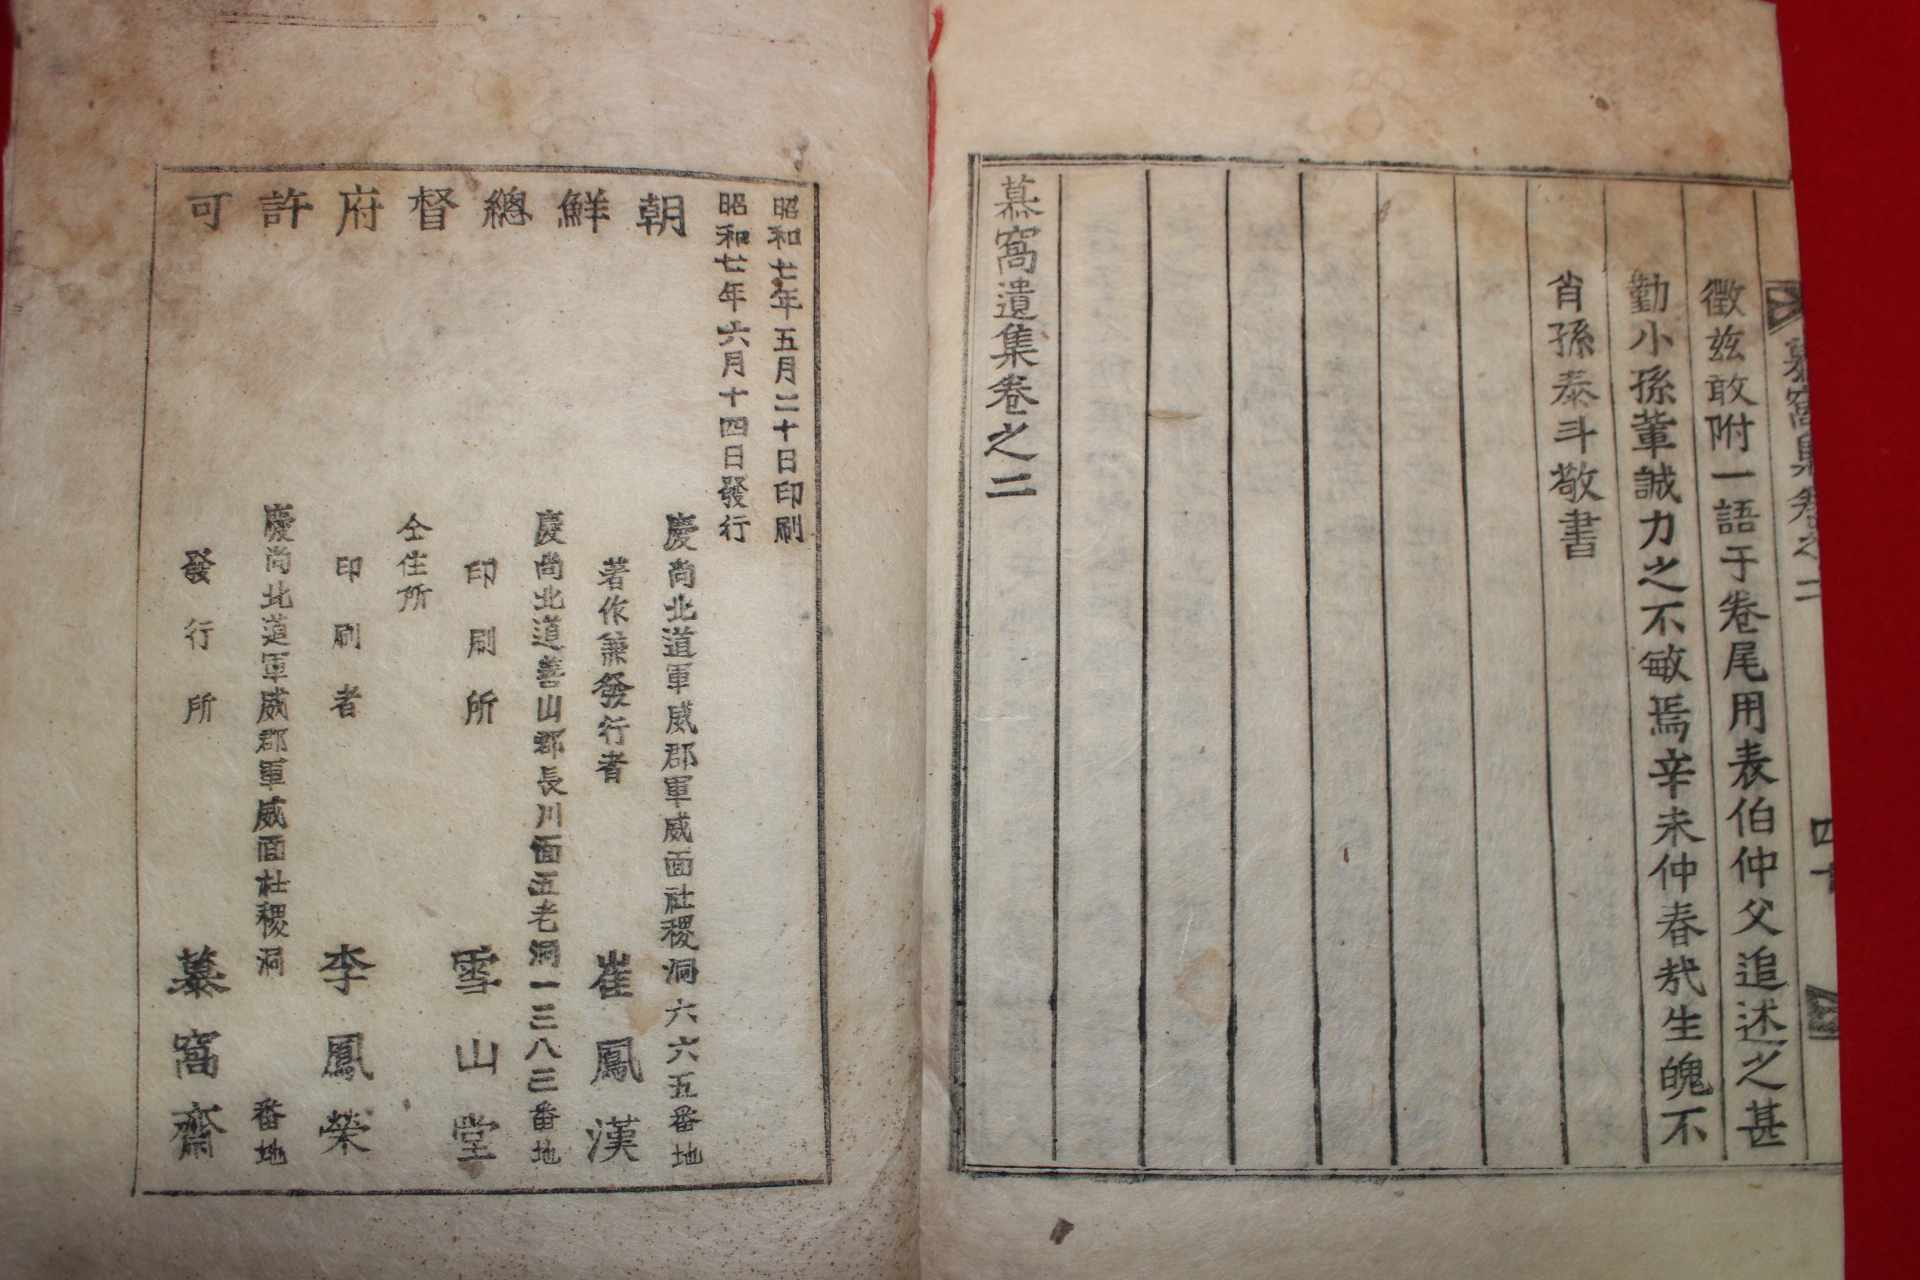 慕窩集卷之二
四十
徵玆敢附一語于卷尾用表伯仲父追述之甚
勤小孫輩誠力之不敏焉辛未仲春哉生魄不
肖孫泰斗敬書
慕窩遺集卷之二
昭和七年五月二十日印刷
昭和七年六月十四日發行
朝鮮總督府許可
慶尚北道軍威郡軍威面社稷洞六六五番地
著作兼發行者 崔鳳漢
慶尚北道善山郡長川面五老洞一三八三番地
印刷所 雪山堂
仝住所
印刷者 李鳳榮
慶尚北道軍威郡軍威面社稷洞 番地
發行所 慕窩齋